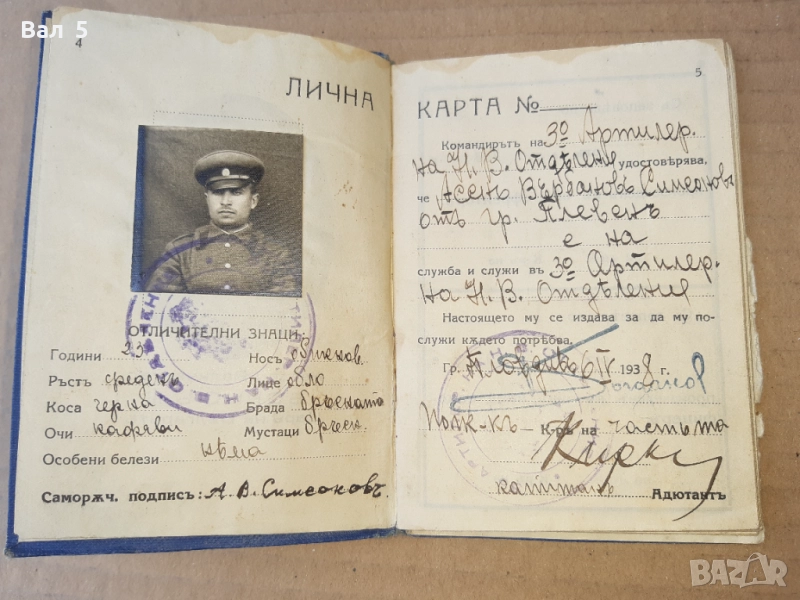 Вал 5
4
ЛИЧНА
ОТЛИЧИТЕЛНИ ЗНАЦИ:
Години 23 Носъ обикнов.
Ръстъ среденъ Лице обло
Коса черна Брада бръсната
Очи кафяви Мустаци бръсн.
Особени белези нѣма
Саморѫч. подпись: А. В. Симеоновъ
5
КАРТА №
Командирътъ на 3о Артилер.
на Н. В. Отдѣление удостовѣрява,
че Асенъ Върбановъ Симеоновъ
отъ гр. Плевенъ
е на
служба и служи въ 3о Артилер.
на Н. В. Отдѣление
Настоящето му се издава за да му по-
служи кждето потрѣбва.
Гр. Пловдивъ 6 IV 1938 г.
Полк-къ Къръ на частьта
капитанъ Адютантъ
BAZAR